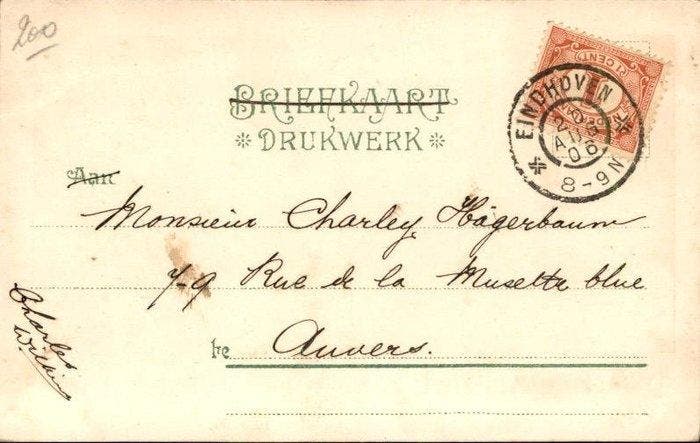 200
BRIEFKAART
DRUKWERK
Aan
Monsieur Charley Hägerbaum
7-9 Rue de la Musette blue
te Anvers.
Charles
½ CENT
EINDHOVEN
AUG
06
8-9N